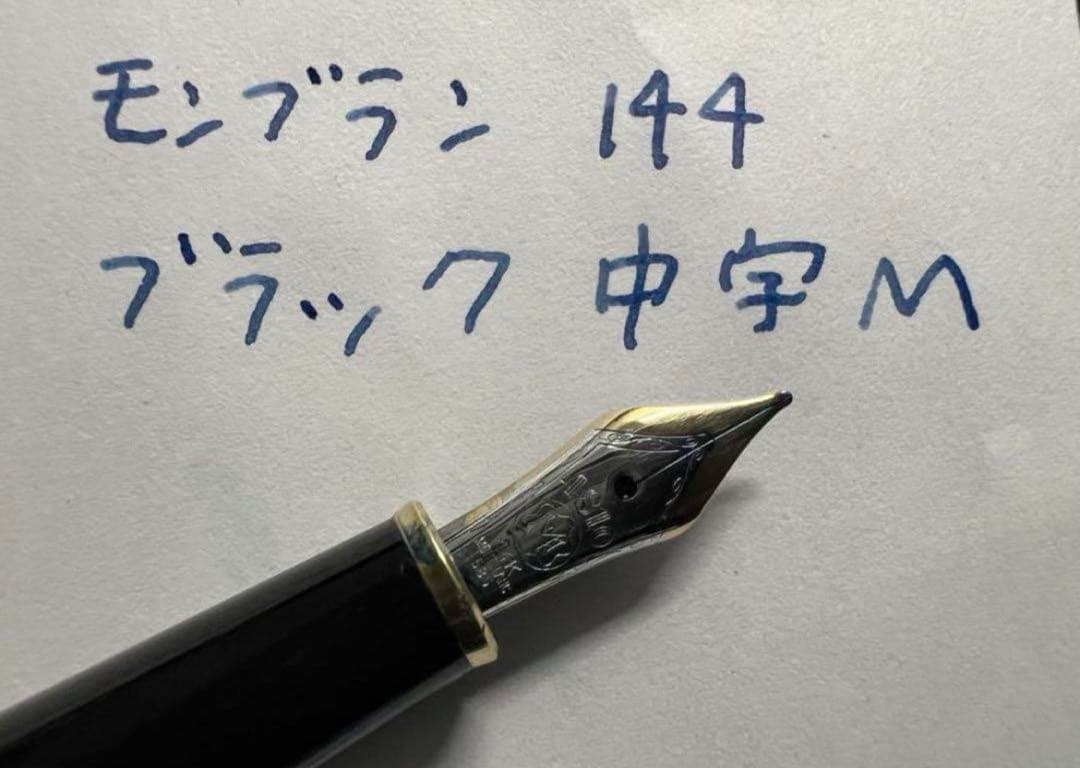 モンブラン 144
ブラック 中字 M
4810
14K